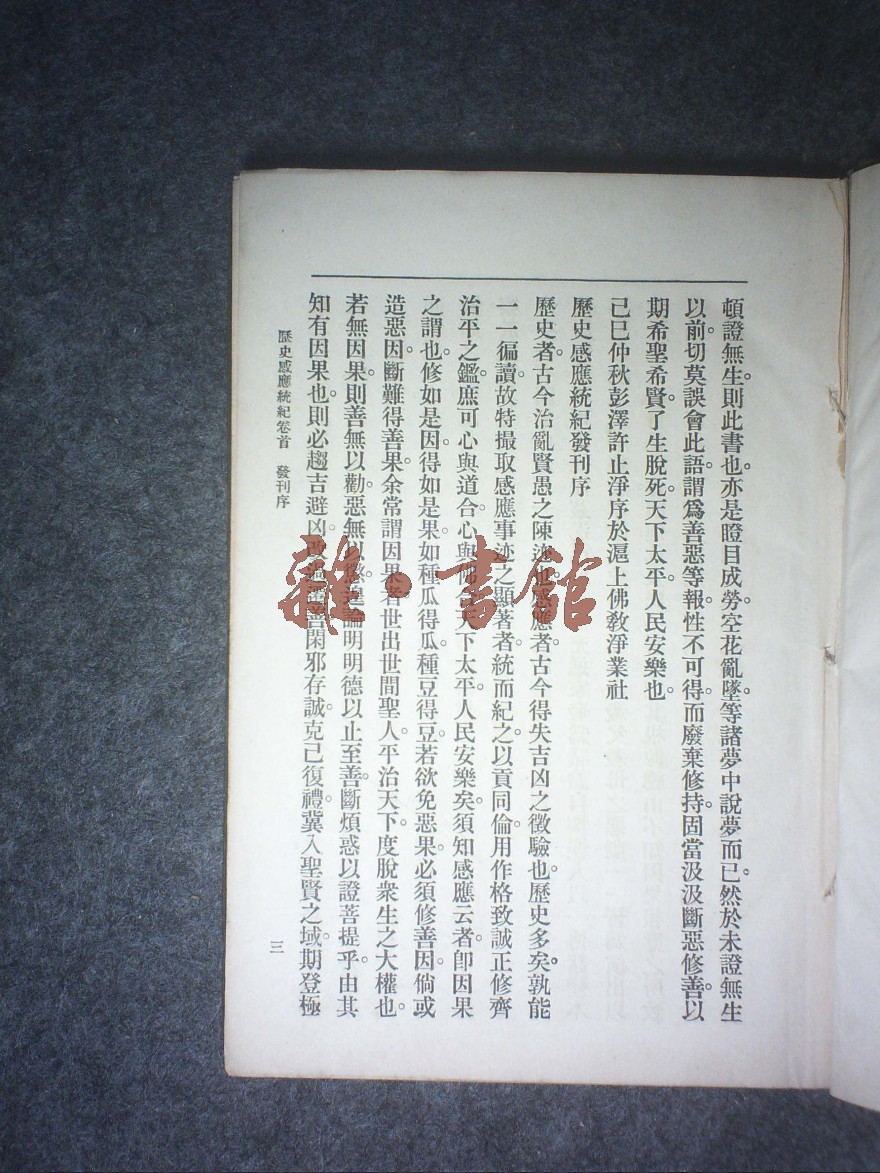 頓證無生。則此書也。亦是瞪目成勞。空花亂墜。等諸夢中說夢而已。然於未證無生
以前。切莫誤會此語。謂爲善惡等報。性不可得。而廢棄修持。固當汲汲斷惡修善。以
期希聖希賢。了生脫死。天下太平。人民安樂也。
己巳仲秋彭澤許止淨序於滬上佛教淨業社
歷史感應統紀發刊序
歷史者。古今治亂賢愚之陳迹也。感應者。古今得失吉凶之徵驗也。歷史多矣。孰能
一一徧讀。故特撮取感應事迹之顯著者。統而紀之。以貢同倫。用作格致誠正修齊
治平之鑑。庶可心與道合。心與佛合。天下太平。人民安樂矣。須知感應云者。卽因果
之謂也。修如是因。得如是果。如種瓜得瓜。種豆得豆。若欲免惡果。必須修善因。倘或
造惡因。斷難得善果。余常謂因果者。世出世間聖人。平治天下。度脫衆生之大權也。
若無因果。則善無以勸。惡無以懲。遑論明明德以止至善。斷煩惑以證菩提乎。由其
知有因果也。則必趨吉避凶。改過遷善。閑邪存誠。克己復禮。冀入聖賢之域。期登極
歷史感應統紀卷首　發刊序
三
雜·書館